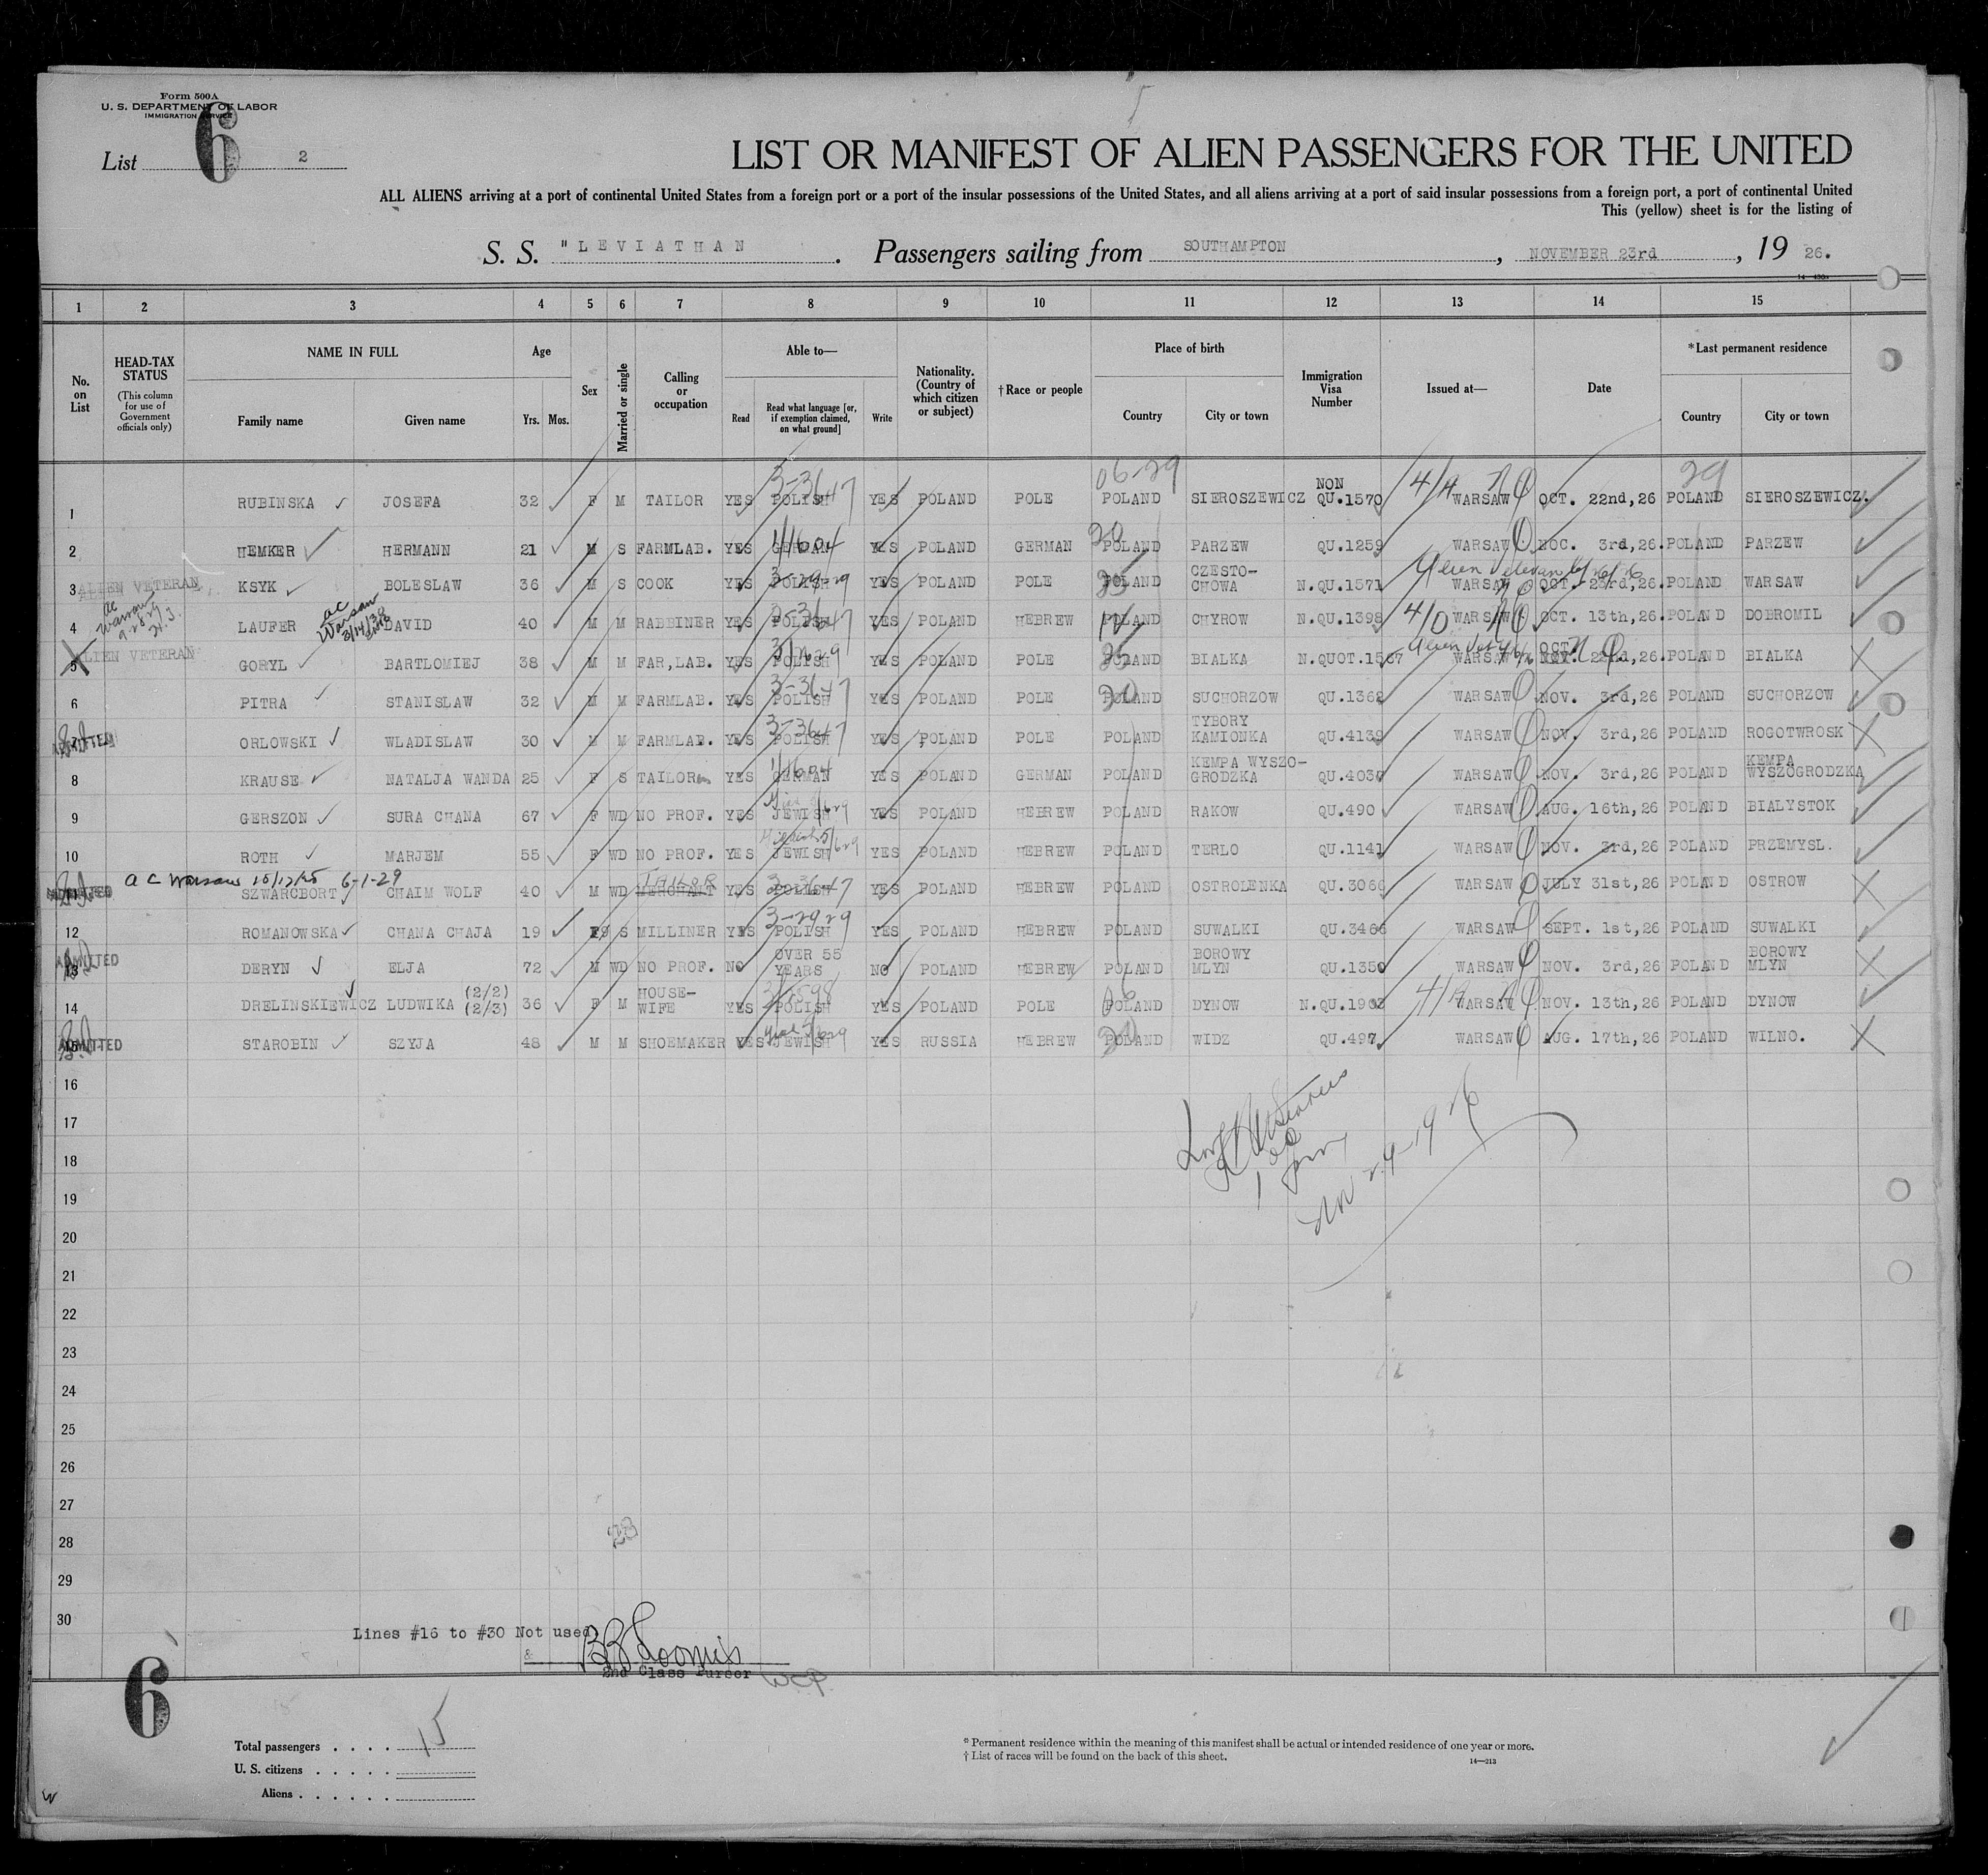 Form 500A
U. S. DEPARTMENT OF LABOR
IMMIGRATION SERVICE
6
List 2
LIST OR MANIFEST OF ALIEN PASSENGERS FOR THE UNITED
ALL ALIENS arriving at a port of continental United States from a foreign port or a port of the insular possessions of the United States, and all aliens arriving at a port of said insular possessions from a foreign port, a port of continental United
This (yellow) sheet is for the listing of
S. S. "LEVIATHAN. Passengers sailing from SOUTHAMPTON, NOVEMBER 23rd, 19 26.
1 2 3 4 5 6 7 8 9 10 11 12 13 14 15
No. on List
HEAD-TAX STATUS
(This column for use of Government officials only)
NAME IN FULL
Family name Given name
Age
Yrs. Mos.
Sex
Married or single
Calling or occupation
Able to—
Read
Read what language [or, if exemption claimed, on what ground]
Write
Nationality. (Country of which citizen or subject)
†Race or people
Place of birth
Country City or town
Immigration Visa Number
Issued at—
Date
*Last permanent residence
Country City or town
06-29 29
1 RUBINSKA JOSEFA 32 F M TAILOR YES POLISH YES POLAND POLE POLAND SIEROSZEWICZ NON QU.1570 WARSAW OCT. 22nd,26 POLAND SIEROSZEWICZ.
2 HEMKER HERMANN 21 M S FARMLAB. YES GERMAN YES POLAND GERMAN POLAND PARZEW QU.1259 WARSAW NOC. 3rd,26. POLAND PARZEW
3 ALIEN VETERAN KSYK BOLESLAW 36 M S COOK YES POLISH YES POLAND POLE POLAND CZESTO-CHOWA N.QU.1571 WARSAW OCT. 23rd,26. POLAND WARSAW
4 LAUFER DAVID 40 M M RABBINER YES POLISH YES POLAND HEBREW POLAND CHYROW N.QU.1398 WARSAW OCT. 13th,26. POLAND DOBROMIL
5 ALIEN VETERAN GORYL BARTLOMIEJ 38 M M FAR,LAB. YES POLISH YES POLAND POLE POLAND BIALKA N.QUOT.1567 WARSAW OCT. NOV. 22nd,26. POLAND BIALKA
6 PITRA STANISLAW 32 M M FARMLAB. YES POLISH YES POLAND POLE POLAND SUCHORZOW QU.1362 WARSAW NOV. 3rd,26 POLAND SUCHORZOW
ADMITTED ORLOWSKI WLADISLAW 30 M M FARMLAB. YES POLISH YES POLAND POLE POLAND TYBORY KAMIONKA QU.4139 WARSAW NOV. 3rd,26 POLAND ROGOTWROSK
8 KRAUSE NATALJA WANDA 25 F S TAILOR YES GERMAN YES POLAND GERMAN POLAND KEMPA WYSZO-GRODZKA QU.4030 WARSAW NOV. 3rd,26 POLAND KEMPA WYSZOGRODZKA
9 GERSZON SURA CHANA 67 F WD NO PROF. YES JEWISH YES POLAND HEBREW POLAND RAKOW QU.490 WARSAW AUG. 16th,26 POLAND BIALYSTOK
10 ROTH MARJEM 55 F WD NO PROF. YES JEWISH YES POLAND HEBREW POLAND TERLO QU.1141 WARSAW NOV. 3rd,26 POLAND PRZEMYSL.
a c Warsaw 10/12/25 6-1-29
SZWARCBORT CHAIM WOLF 40 M WD TAILOR MERCHANT YES POLISH YES POLAND HEBREW POLAND OSTROLENKA QU.3060 WARSAW JULY 31st,26 POLAND OSTROW
12 ROMANOWSKA CHANA CHAJA 19 F S MILLINER YES POLISH YES POLAND HEBREW POLAND SUWALKI QU.3466 WARSAW SEPT. 1st,26 POLAND SUWALKI
13 ADMITTED DERYN ELJA 72 M WD NO PROF. NO OVER 55 YEARS NO POLAND HEBREW POLAND BOROWY MLYN QU.1350 WARSAW NOV. 3rd,26 POLAND BOROWY MLYN
14 DRELINSKIEWICZ LUDWIKA (2/2) (2/3) 36 F M HOUSE-WIFE YES POLISH YES POLAND POLE POLAND DYNOW N.QU.1903 WARSAW NOV. 13th,26 POLAND DYNOW
15 ADMITTED STAROBIN SZYJA 48 M M SHOEMAKER YES JEWISH YES RUSSIA HEBREW POLAND WIDZ QU.497 WARSAW AUG. 17th,26 POLAND WILNO.
16
17
18
19
20
21
22
23
24
25
26
27
28
29
30
Lines #16 to #30 Not used
BB Loomis
2nd Class Purser
6
Total passengers . . . . 15
U. S. citizens . . . . .
Aliens . . . . . .
* Permanent residence within the meaning of this manifest shall be actual or intended residence of one year or more.
† List of races will be found on the back of this sheet.
14—213